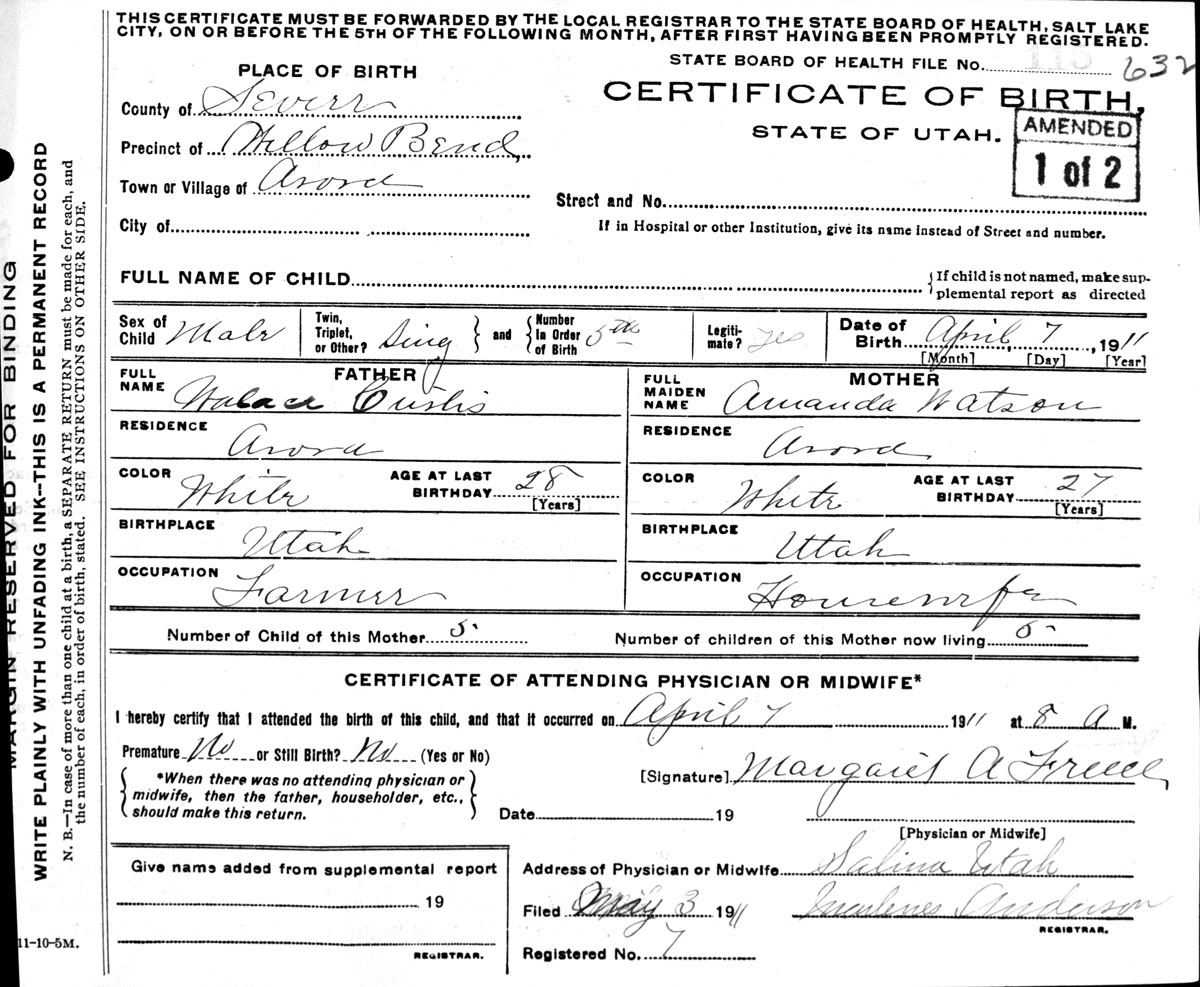 THIS CERTIFICATE MUST BE FORWARDED BY THE LOCAL REGISTRAR TO THE STATE BOARD OF HEALTH, SALT LAKE
CITY, ON OR BEFORE THE 5TH OF THE FOLLOWING MONTH, AFTER FIRST HAVING BEEN PROMPTLY REGISTERED.
STATE BOARD OF HEALTH FILE No. 113 632
PLACE OF BIRTH
CERTIFICATE OF BIRTH,
STATE OF UTAH.
AMENDED
1 of 2
County of Sevier
Precinct of Willow Bend
Town or Village of Arord
Street and No.
City of
If in Hospital or other Institution, give its name instead of Street and number.
FULL NAME OF CHILD
{If child is not named, make sup-
plemental report as directed
Sex of Child Male
Twin, Triplet, or Other? Sing } and { Number In Order of Birth 5th
Legiti-mate? yes
Date of Birth April 7, 1911
[Month] [Day] [Year]
FATHER
FULL NAME Walace Curtis
MOTHER
FULL MAIDEN NAME Amanda Watson
RESIDENCE Arord
RESIDENCE Arord
COLOR White AGE AT LAST BIRTHDAY 28 [Years]
COLOR White AGE AT LAST BIRTHDAY 27 [Years]
BIRTHPLACE Utah
BIRTHPLACE Utah
OCCUPATION Farmer
OCCUPATION Housewife
Number of Child of this Mother 5 Number of children of this Mother now living 5
CERTIFICATE OF ATTENDING PHYSICIAN OR MIDWIFE*
I hereby certify that I attended the birth of this child, and that it occurred on April 7 1911 at 8 A M.
Premature No or Still Birth? No (Yes or No)
{*When there was no attending physician or
midwife, then the father, householder, etc.,
should make this return.}
[Signature] Margaret A
Date 19
[Physician or Midwife]
Give name added from supplemental report
19
REGISTRAR.
Address of Physician or Midwife Salina Utah
Filed May 3 1911 Anderson
REGISTRAR.
Registered No. 7
11-10-5M.
MARGIN RESERVED FOR BINDING
WRITE PLAINLY WITH UNFADING INK--THIS IS A PERMANENT RECORD
N. B.—In case of more than one child at a birth, a SEPARATE RETURN must be made for each, and
the number of each, in order of birth, stated. SEE INSTRUCTIONS ON OTHER SIDE.